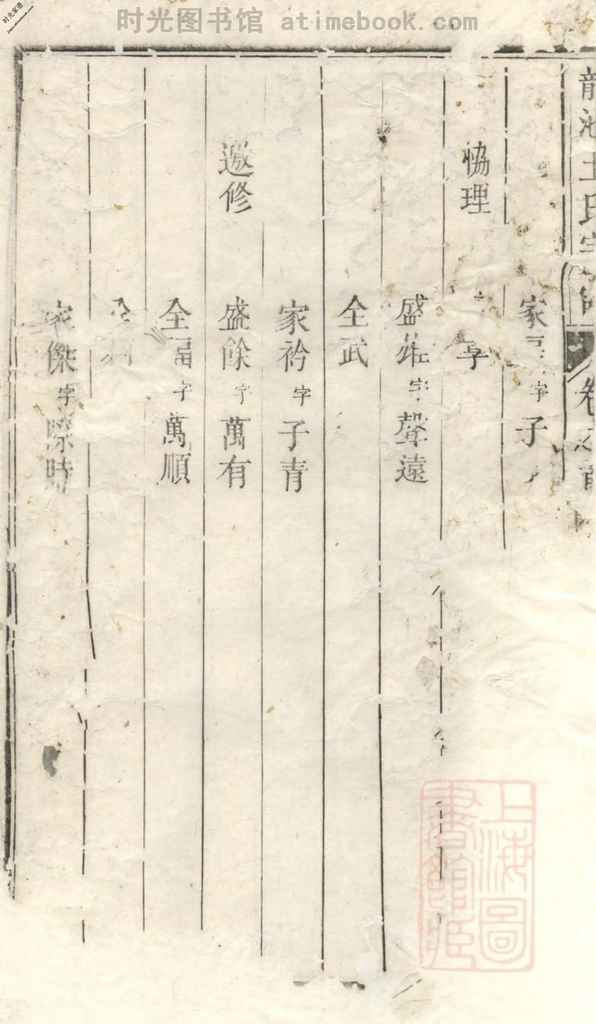 时光图书馆 atimebook.com
时光家谱
龍池王氏宗譜 卷之首
家 字子
恊理
字
盛 字聲遠
全武
家衿字子青
遨修
盛餘字萬有
全福字萬順
家傑字際時
上海圖書館藏